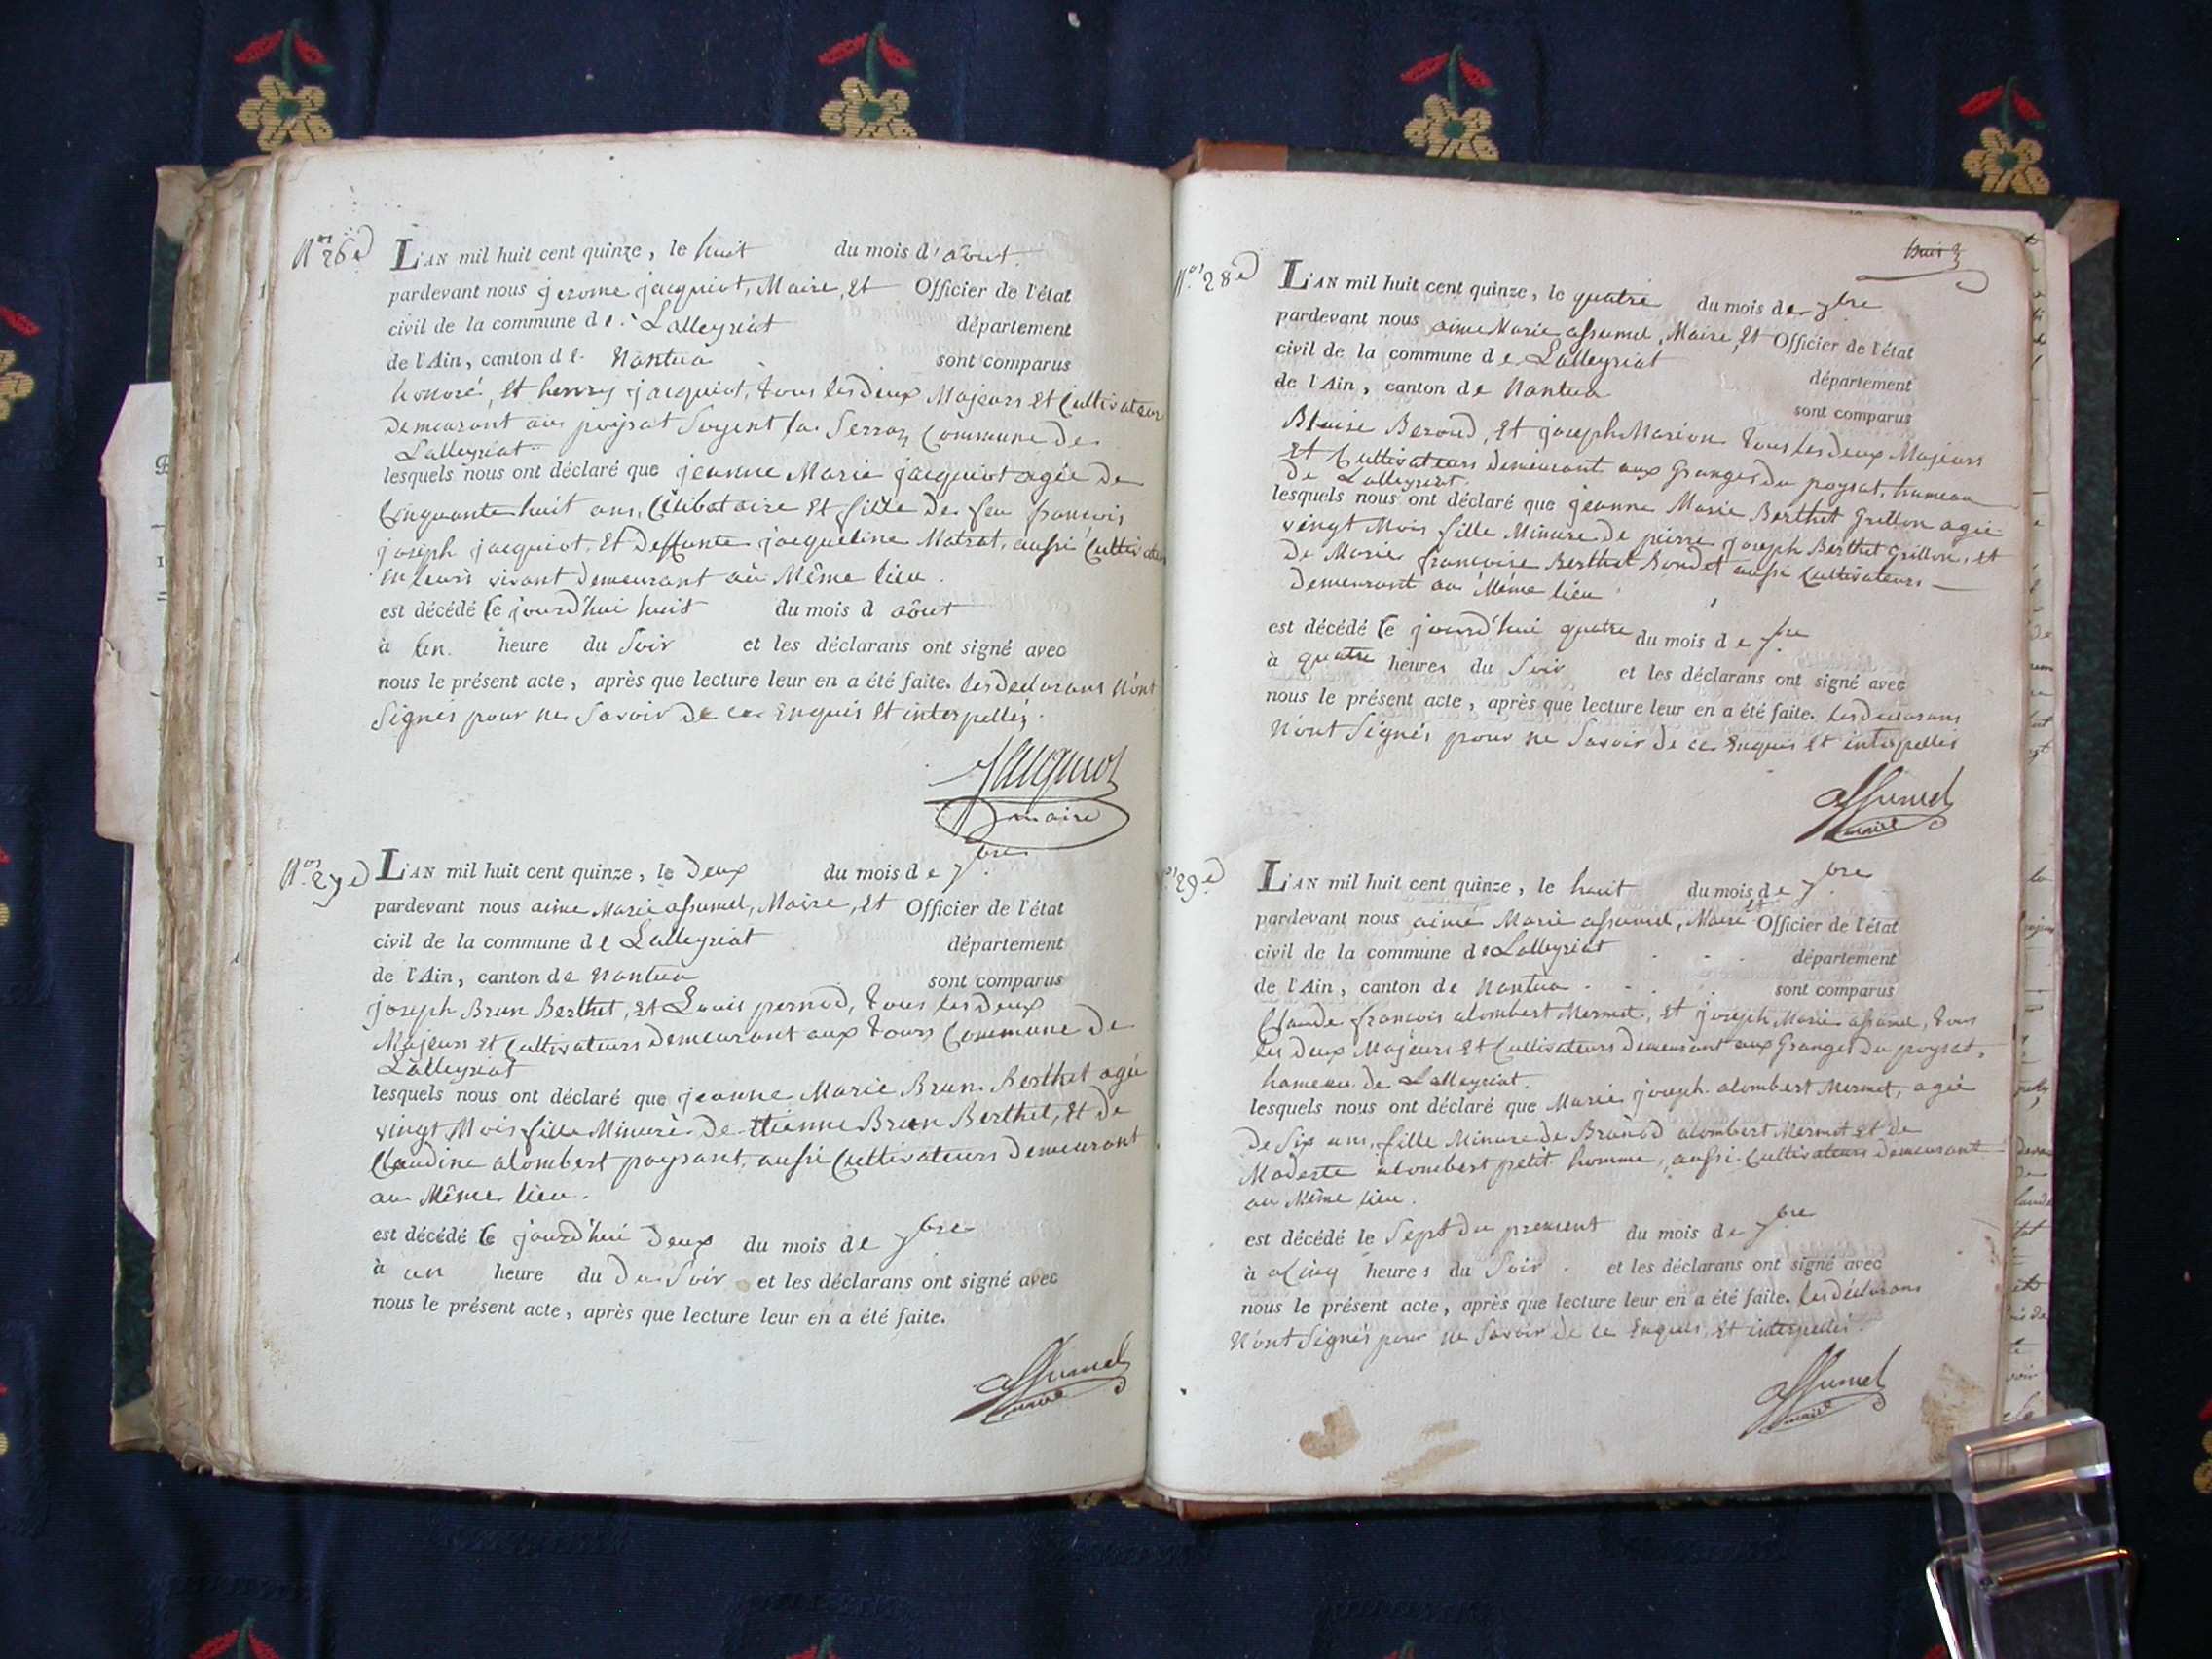 Nos 26e
L'AN mil huit cent quinze, le huit du mois d'aôut
pardevant nous jerome jacquiot, Maire, Et Officier de l'état
civil de la commune de Lalleyriat département
de l'Ain, canton de Nantua sont comparus
honoré, Et henry jacquiot, tous les deux Majeurs Et Cultivateurs
Demeurant au poysat Commune De
Lalleyriat
lesquels nous ont déclaré que jeanne Marie jacquiot agée De
Cinquante huit ans, Célibataire Et fille De feu francois
joseph jacquiot, Et Deffunte jacqueline Matrat, aussi Cultivateurs
En leurs vivant Demeurant au Même lieu.
est décédé le jourd'hui huit du mois d aôut
à un heure du Soir et les déclarans ont signé avec
nous le présent acte, après que lecture leur en a été faite. les Declarans N'ont
Signés pour ne Savoir De ce Enquis Et interpellés.
Jacquiot
maire
Nos 27e
L'AN mil huit cent quinze, le Deux du mois de 7bre
pardevant nous aimé Marie assumel, Maire, Et Officier de l'état
civil de la commune de Lalleyriat département
de l'Ain, canton de Nantua sont comparus
joseph Brun Berthet, Et Louis pernod, tous les Deux
Majeurs Et Cultivateurs Demeurant aux tours Commune De
Lalleyriat
lesquels nous ont déclaré que jeanne Marie Brun Berthet agée
vingt Mois fille Minure De Etienne Brun Berthet, Et De
Claudine alombert paysant, aussi Cultivateurs Demeurant
au Même lieu.
est décédé le jourd'hui Deux du mois de 7bre
à un heure du Du Soir et les déclarans ont signé avec
nous le présent acte, après que lecture leur en a été faite.
assumel
maire
huit
Nos 28e
L'AN mil huit cent quinze, le quatre du mois de 7bre
pardevant nous aimé Marie assumel, Maire, Et Officier de l'état
civil de la commune de Lalleyriat département
de l'Ain, canton de Nantua sont comparus
Blaise Beroud, Et joseph Marion tous les deux Majeurs
Et Cultivateurs Demeurant aux Granges Du poysat, hameau
De Lalleyriat.
lesquels nous ont déclaré que jeanne Marie Berthet Grillon agée
vingt Mois fille Minure De peirre joseph Berthet Grillon, Et
De Marie francoise Berthet Bondet aussi Cultivateurs
Demeurant au Même lieu
est décédé le jourd'hui quatre du mois de 7bre
à quatre heures du Soir et les déclarans ont signé avec
nous le présent acte, après que lecture leur en a été faite. les Declarans
N'ont Signés pour ne Savoir De ce Enquis Et interpellés
assumel
maire
29e
L'AN mil huit cent quinze, le huit du mois de 7bre
pardevant nous aimé Marie assumel, Maire Et Officier de l'état
civil de la commune de Lalleyriat département
de l'Ain, canton de Nantua sont comparus
Claude francois alombert Mermet, Et joseph Marie assumel, tous
les Deux Majeurs Et Cultivateurs Demeurant aux Granges Du poysat,
hameau De Lalleyriat.
lesquels nous ont déclaré que Marie joseph alombert Mermet, agée
De Six ans, fille Minure De alombert Mermet Et De
Modeste alombert petit homme, aussi Cultivateurs Demeurant
au Même lieu.
est décédé le Sept Du present du mois de 7bre
à Cinq heures du Soir et les déclarans ont signé avec
nous le présent acte, après que lecture leur en a été faite. les déclarans
N'ont Signés pour ne Savoir De ce Enquis, Et interpellés.
assumel
maire